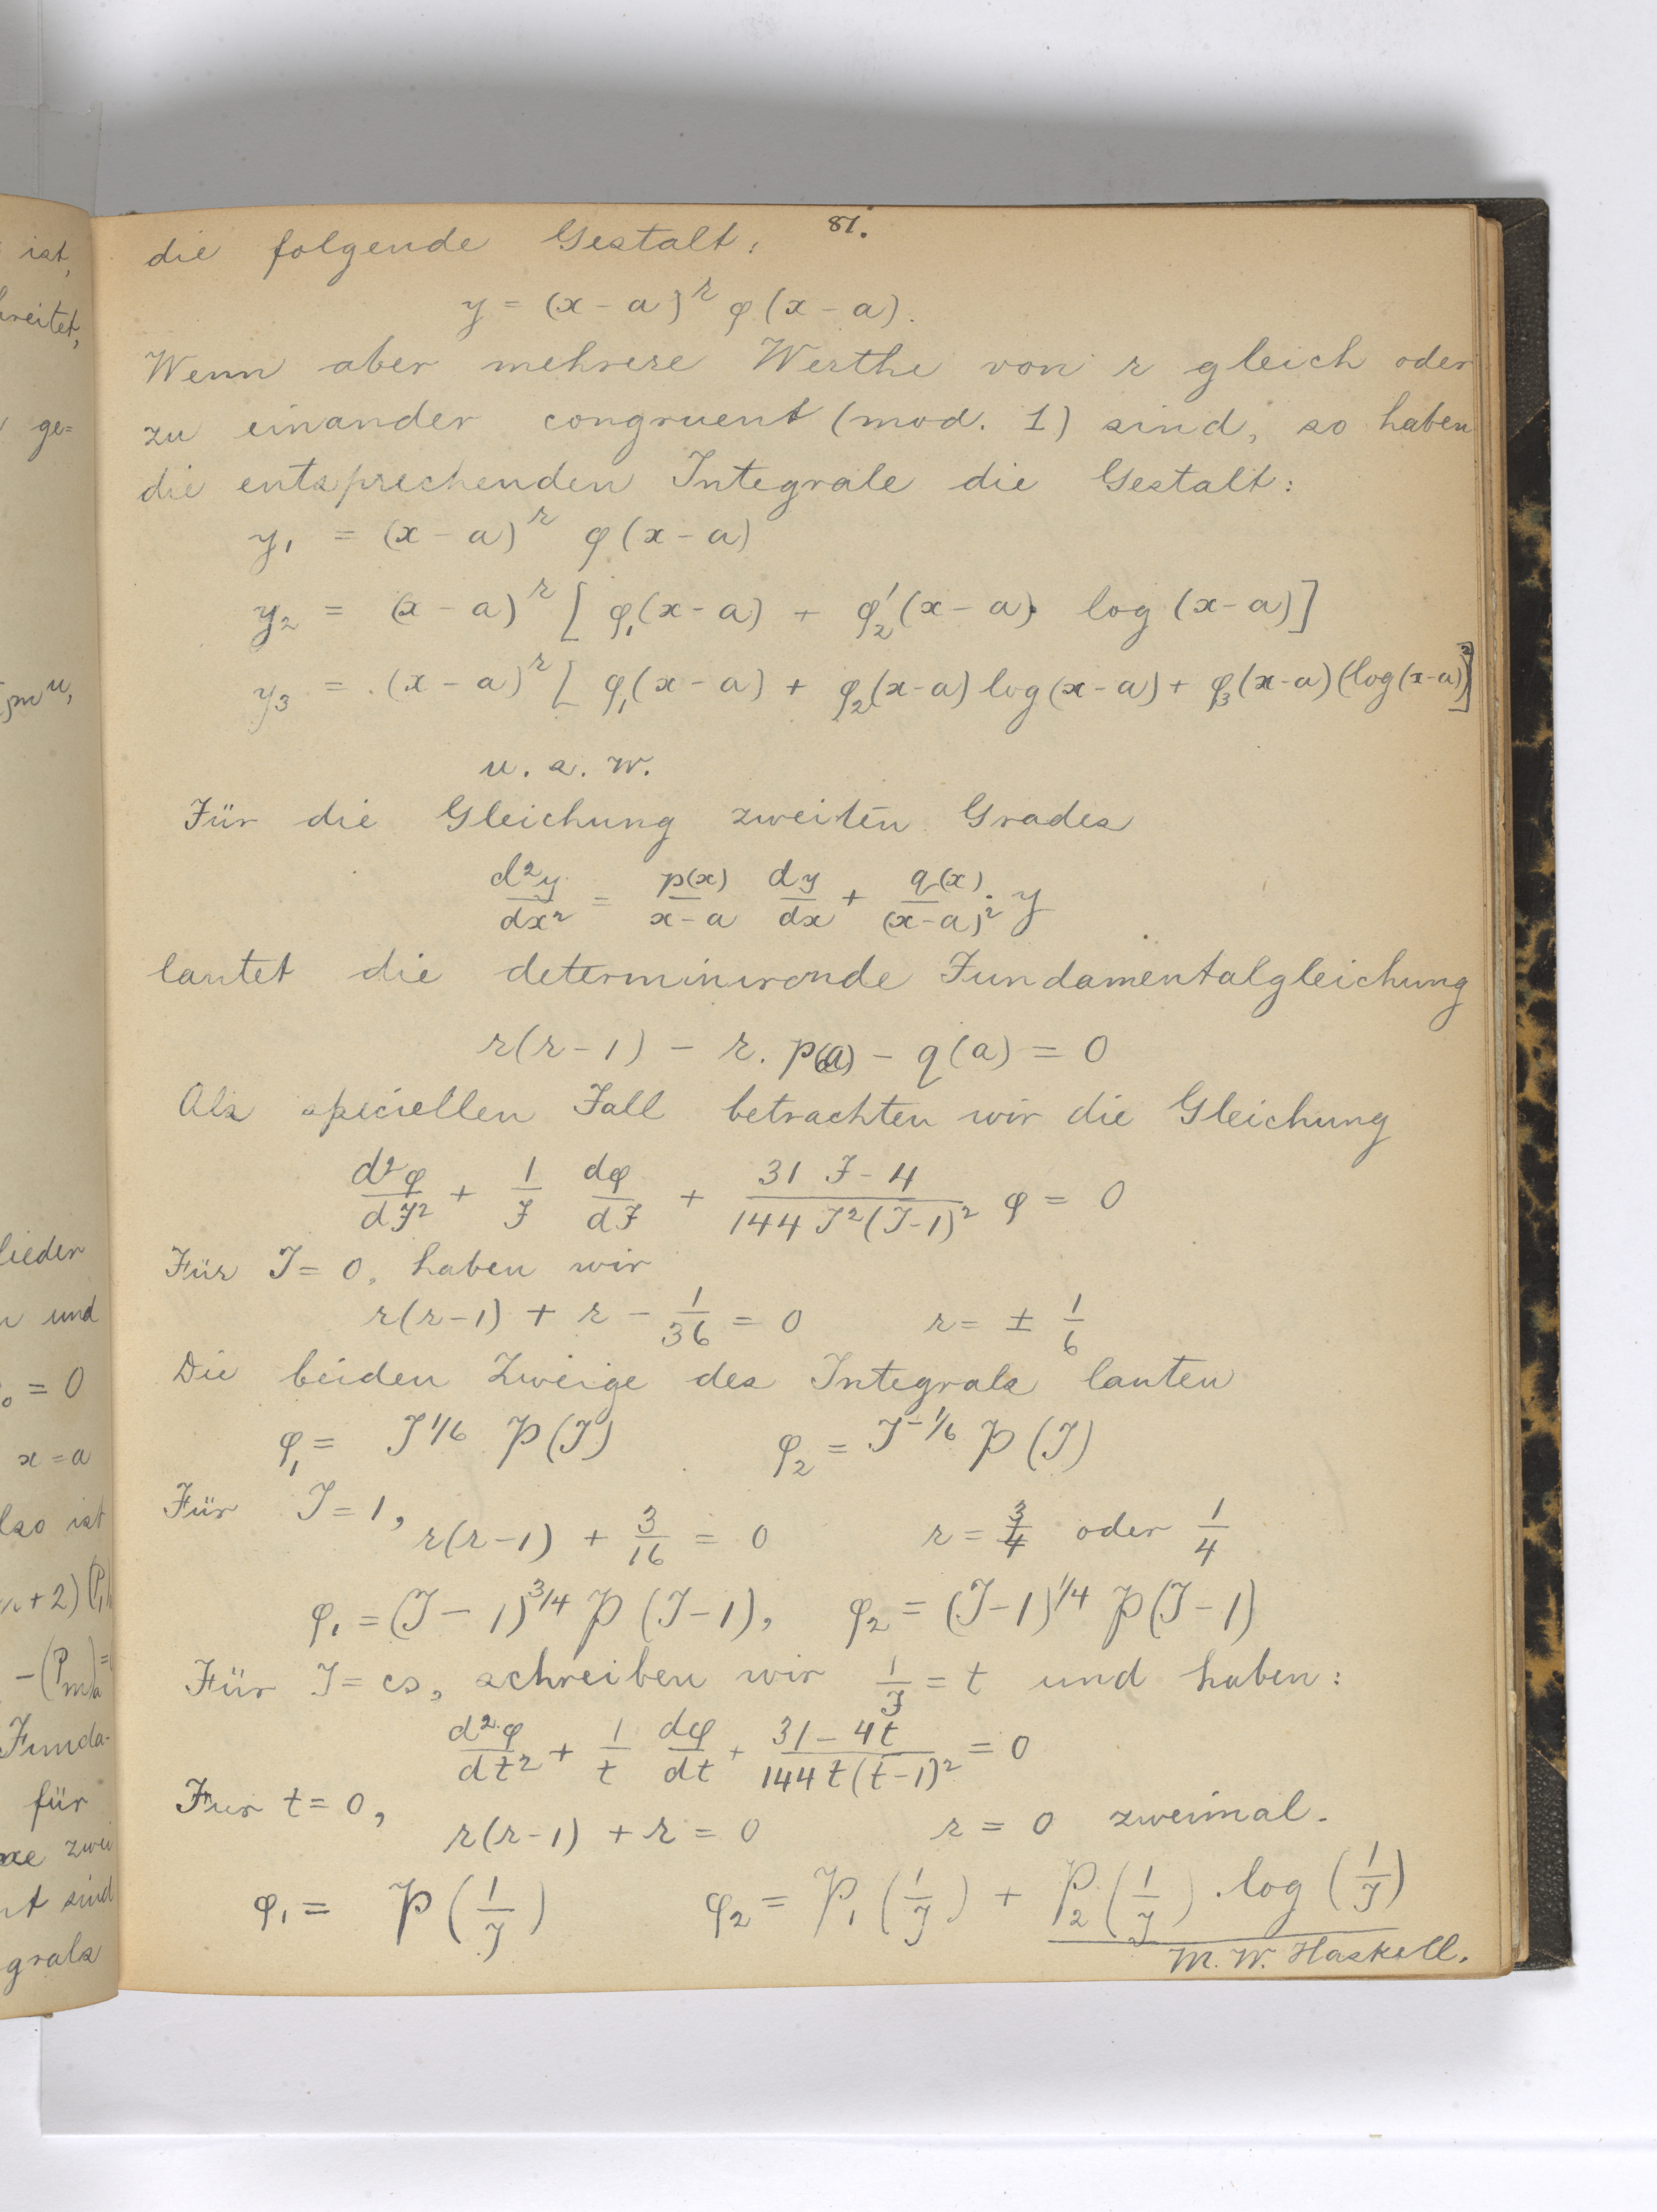 ist,
breitet,
ge=
lieder
und
= 0
x = a
lso ist
+ 2)
Funda-
für
zwei
sind
grals
81.
die folgende Gestalt:
y = (x - a)^r φ(x - a).
Wenn aber mehrere Werthe von r gleich oder
zu einander congruent (mod. 1) sind, so haben
die entsprechenden Integrale die Gestalt:
y₁ = (x - a)^r φ(x - a)
y₂ = (x - a)^r [φ₁(x - a) + φ₂'(x - a) · log (x - a)]
y₃ = (x - a)^r [φ₁(x - a) + φ₂(x-a) log(x-a) + φ₃(x-a)(log(x-a))²]
u. s. w.
Für die Gleichung zweiten Grades
d²y/dx² = p(x)/(x-a) dy/dx + q(x)/(x-a)² · y
lautet die determinirende Fundamentalgleichung
r(r-1) - r. p(a) - q(a) = 0
Als speciellen Fall betrachten wir die Gleichung
d²φ/dJ² + 1/J dφ/dJ + (31 J - 4)/(144 J²(J-1)²) φ = 0
Für J = 0, haben wir
r(r-1) + r - 1/36 = 0 r = ± 1/6
Die beiden Zweige des Integrals lauten
φ₁ = J^1/6 P(J) φ₂ = J^-1/6 P(J)
Für J = 1,
r(r-1) + 3/16 = 0 r = 3/4 oder 1/4
φ₁ = (J - 1)^3/4 P(J-1), φ₂ = (J-1)^1/4 P(J-1)
Für J = ∞, schreiben wir 1/J = t und haben:
d²φ/dt² + 1/t dφ/dt + (31 - 4t)/(144 t(t-1)²) = 0
Fur t = 0,
r(r-1) + r = 0 r = 0 zweimal.
φ₁ = P(1/J) φ₂ = P₁(1/J) + P₂(1/J) · log (1/J)
M. W. Haskell.